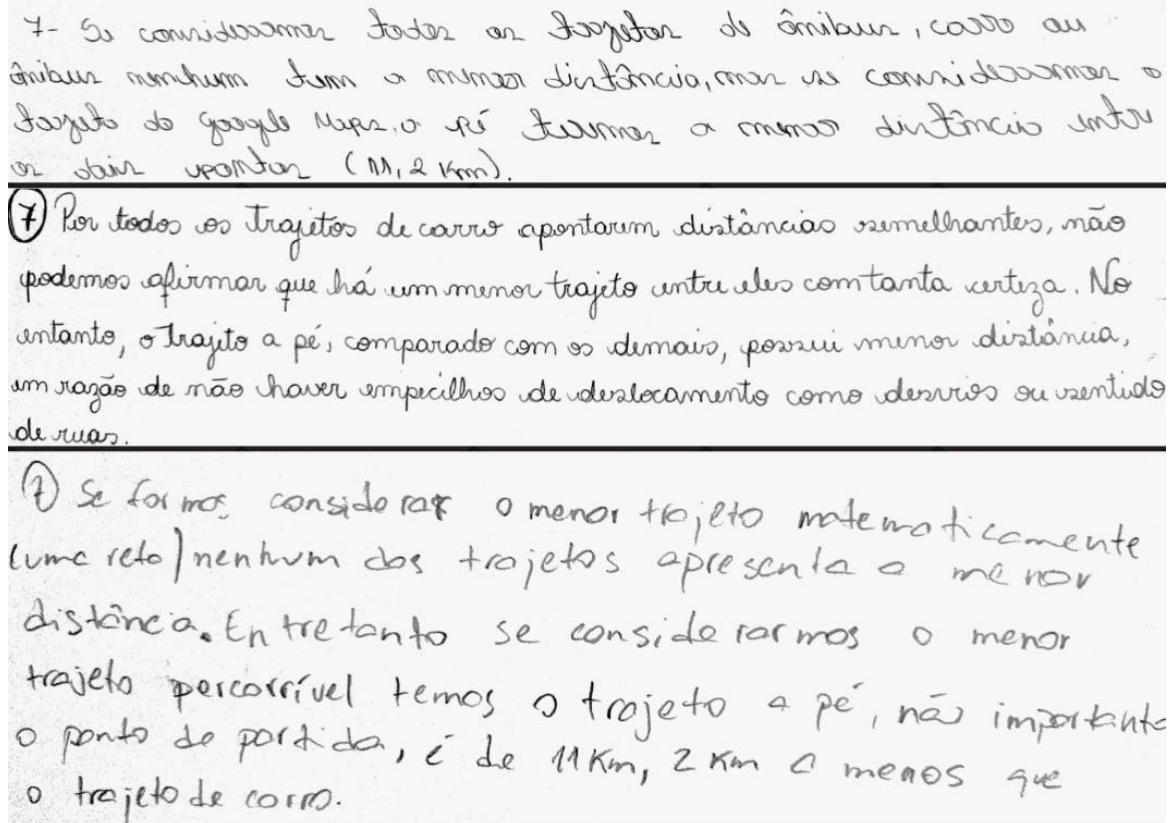 7- Se considerarmos todos os trajetos de ônibus, carro ou
ônibus nenhum tem a menor distância, mas se considerarmos o
trajeto do google Maps, a pé termos a menor distância entre
os dois pontos (11,2 Km).
7 Por todos os trajetos de carro apontarem distâncias semelhantes, não
podemos afirmar que há um menor trajeto entre eles com tanta certeza. No
entanto, o trajeto a pé, comparado com os demais, possui menor distância,
em razão de não haver empecilhos de deslocamento como desvios ou sentido
de ruas.
7 Se formos considerar o menor trajeto matematicamente
(uma reta) nenhum dos trajetos apresenta a menor
distância. Entretanto se considerarmos o menor
trajeto percorrível temos o trajeto a pé, não importanto
o ponto de partida, é de 11 Km, 2 Km a menos que
o trajeto de carro.